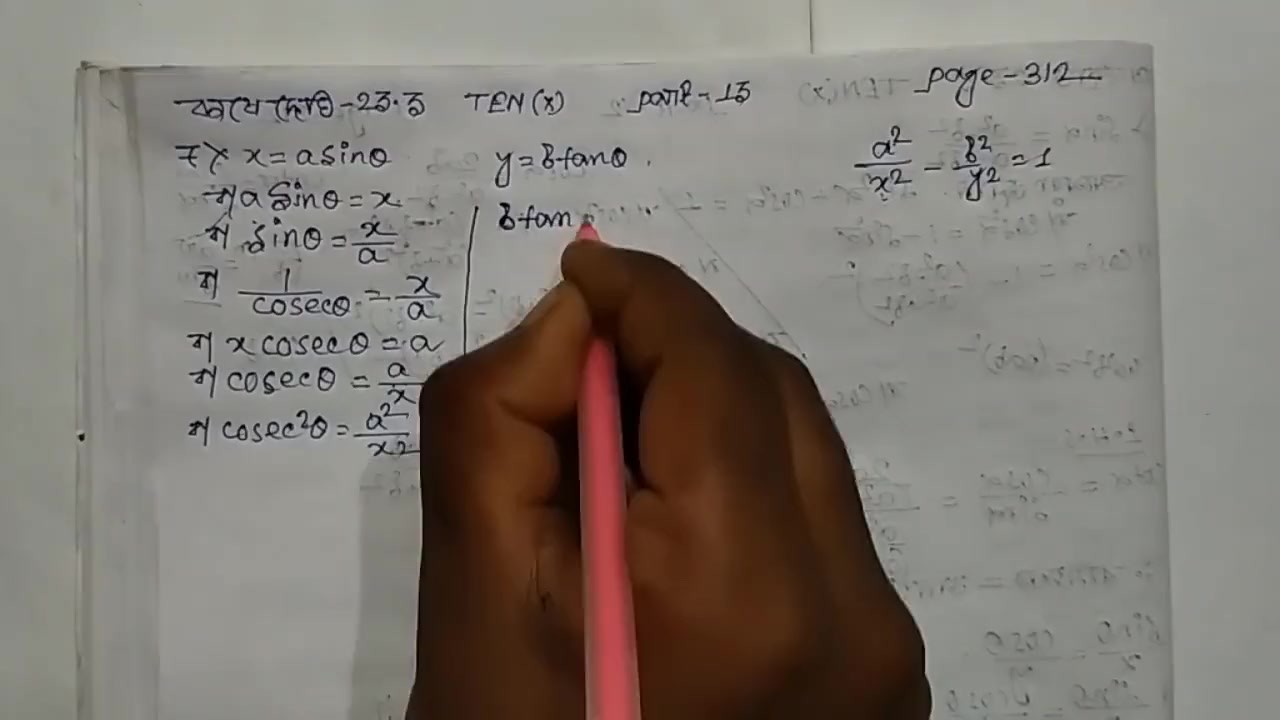 কষে দেখি-23.3 TEN (X) part-13 page-312
7> x = a sinθ y = b tanθ .
বা a sinθ = x
বা sinθ = x/a
বা 1/cosecθ = x/a
বা x cosecθ = a
বা cosecθ = a/x
বা cosec²θ = a²/x²
b tan
a²/x² - b²/y² = 1